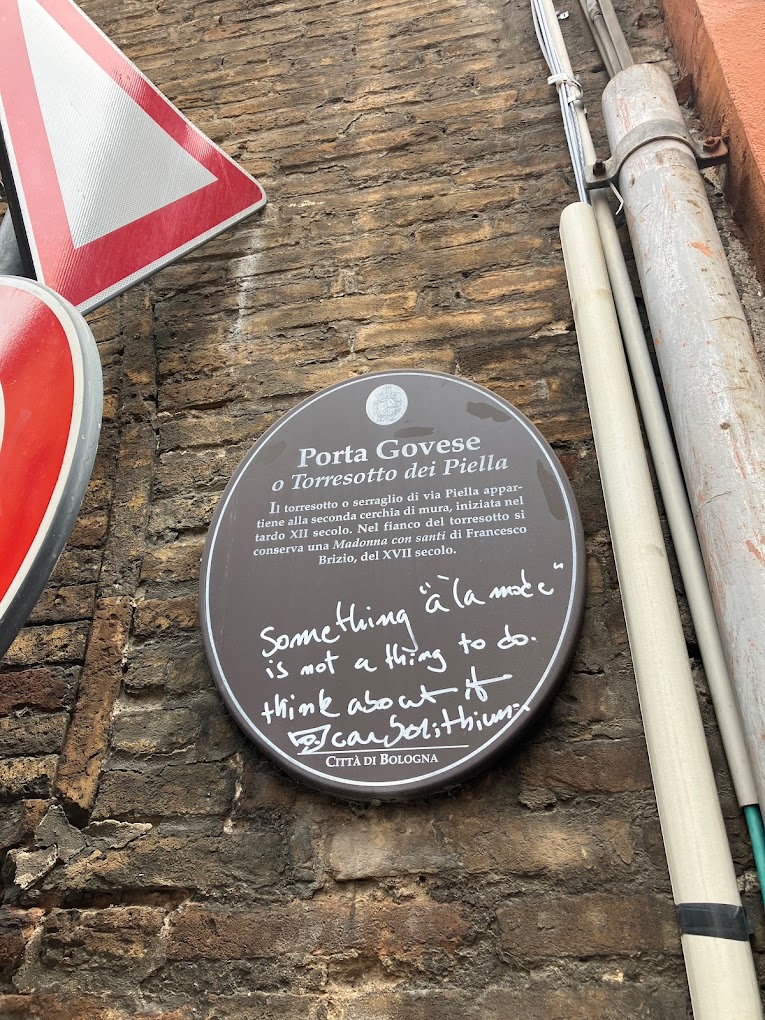 Porta Govese
o Torresotto dei Piella
Il torresotto o serraglio di via Piella appar-
tiene alla seconda cerchia di mura, iniziata nel
tardo XII secolo. Nel fianco del torresotto si
conserva una Madonna con santi di Francesco
Brizio, del XVII secolo.
Something "à la mode"
is not a thing to do.
think about it
Città di Bologna